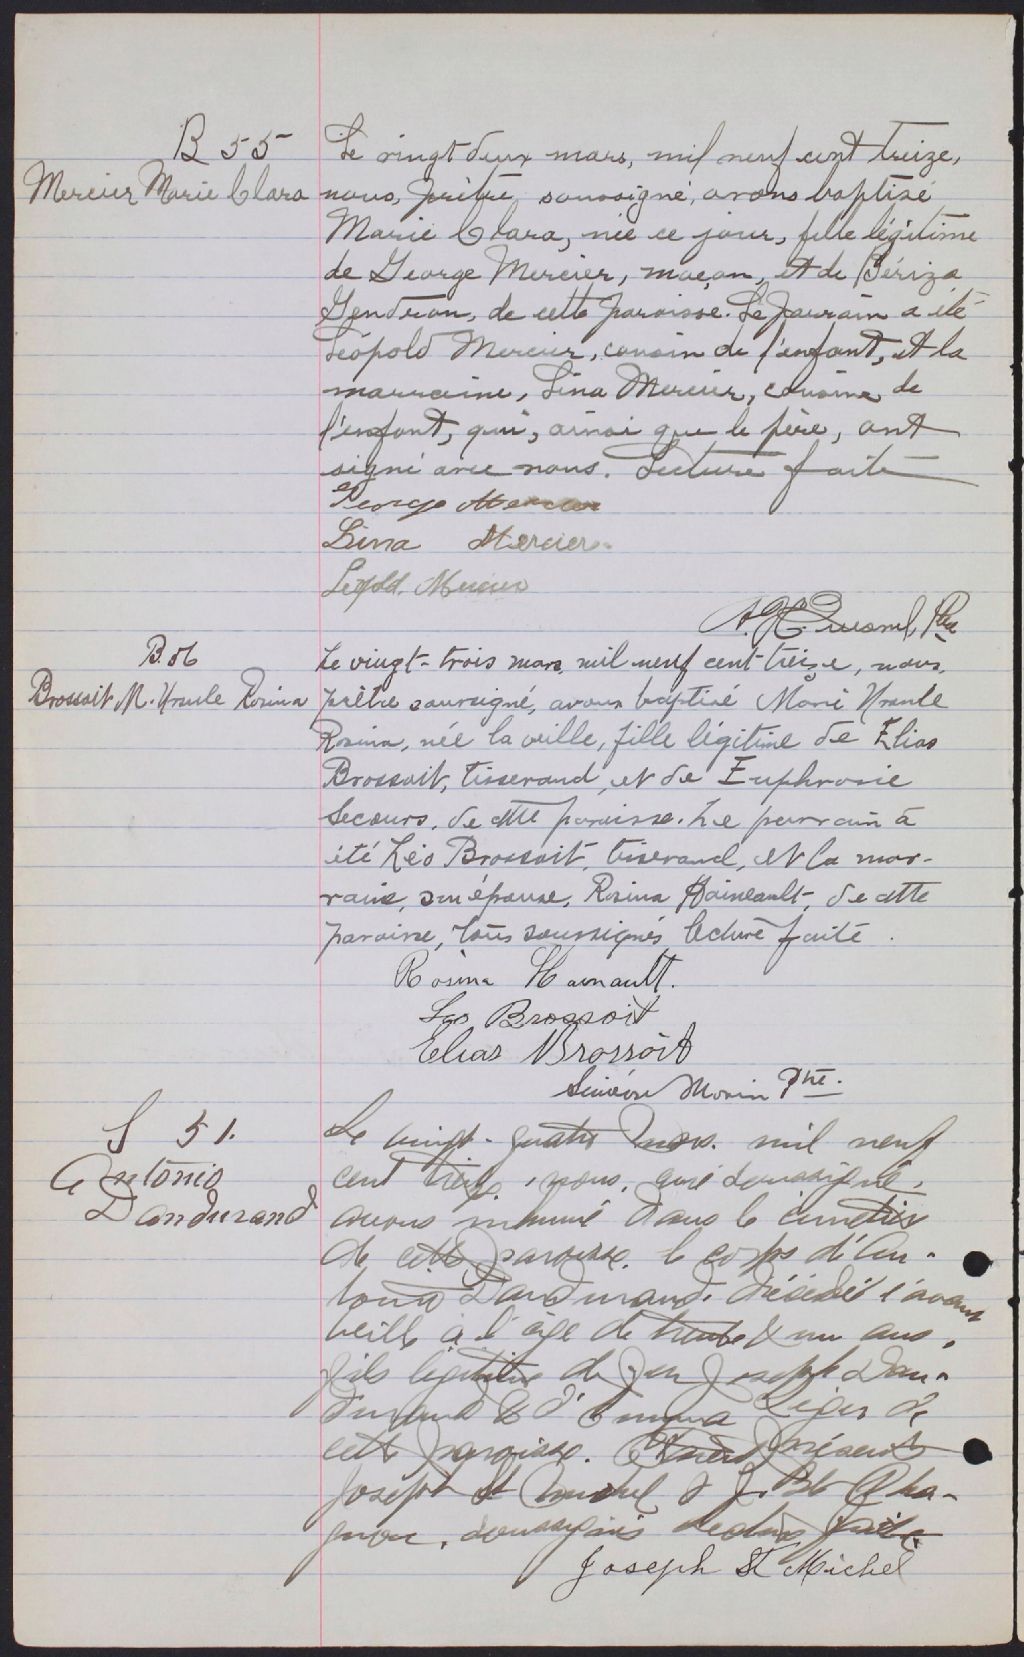 B 55
Mercier Marie Clara
Le vingt deux mars, mil neuf cent treize,
nous, prêtre soussigné, avons baptisé
Marie Clara, née ce jour, fille légitime
de George Mercier, maçon, et de Bériza
Gendron, de cette paroisse. Le parrain a été
Léopold Mercier, cousin de l'enfant, et la
marraine, Lina Mercier, cousine de
l'enfant, qui, ainsi que le père, ont
signé avec nous. Lecture faite
George Mercier
Lina Mercier.
Léopold Mercier
Ptre
B. 56
Brossoit M. Ursule Rosina
Le vingt-trois mars mil neuf cent treize, nous,
prêtre soussigné, avons baptisé Marie Ursule
Rosina, née la veille, fille légitime de Elias
Brossoit, tisserand, et de Euphrosie
Secours, de cette paroisse. Le parrain a
été Léo Brossoit, tisserand, et la mar-
raine, son épouse, Rosina Haineault, de cette
paroisse, tous soussignés lecture faite.
Rosina Hainault.
Léo Brossoit
Elias Brossoit
Siméon Morin Ptre.
S 51.
Antonio
Dandurand
Le vingt-quatre mars. mil neuf
cent treize, nous, curé soussigné,
avons inhumé dans le cimetière
de cette paroisse, le corps d'An-
tonio Dandurand, décédé l'avant
veille à l'âge de trente & un ans,
fils légitime de feu Joseph Dan-
durand & d'Emma Léger de
cette paroisse. Etaient présents
Joseph St Michel & J. Bte Cha-
gnon, soussignés lecture faite.
Joseph St Michel